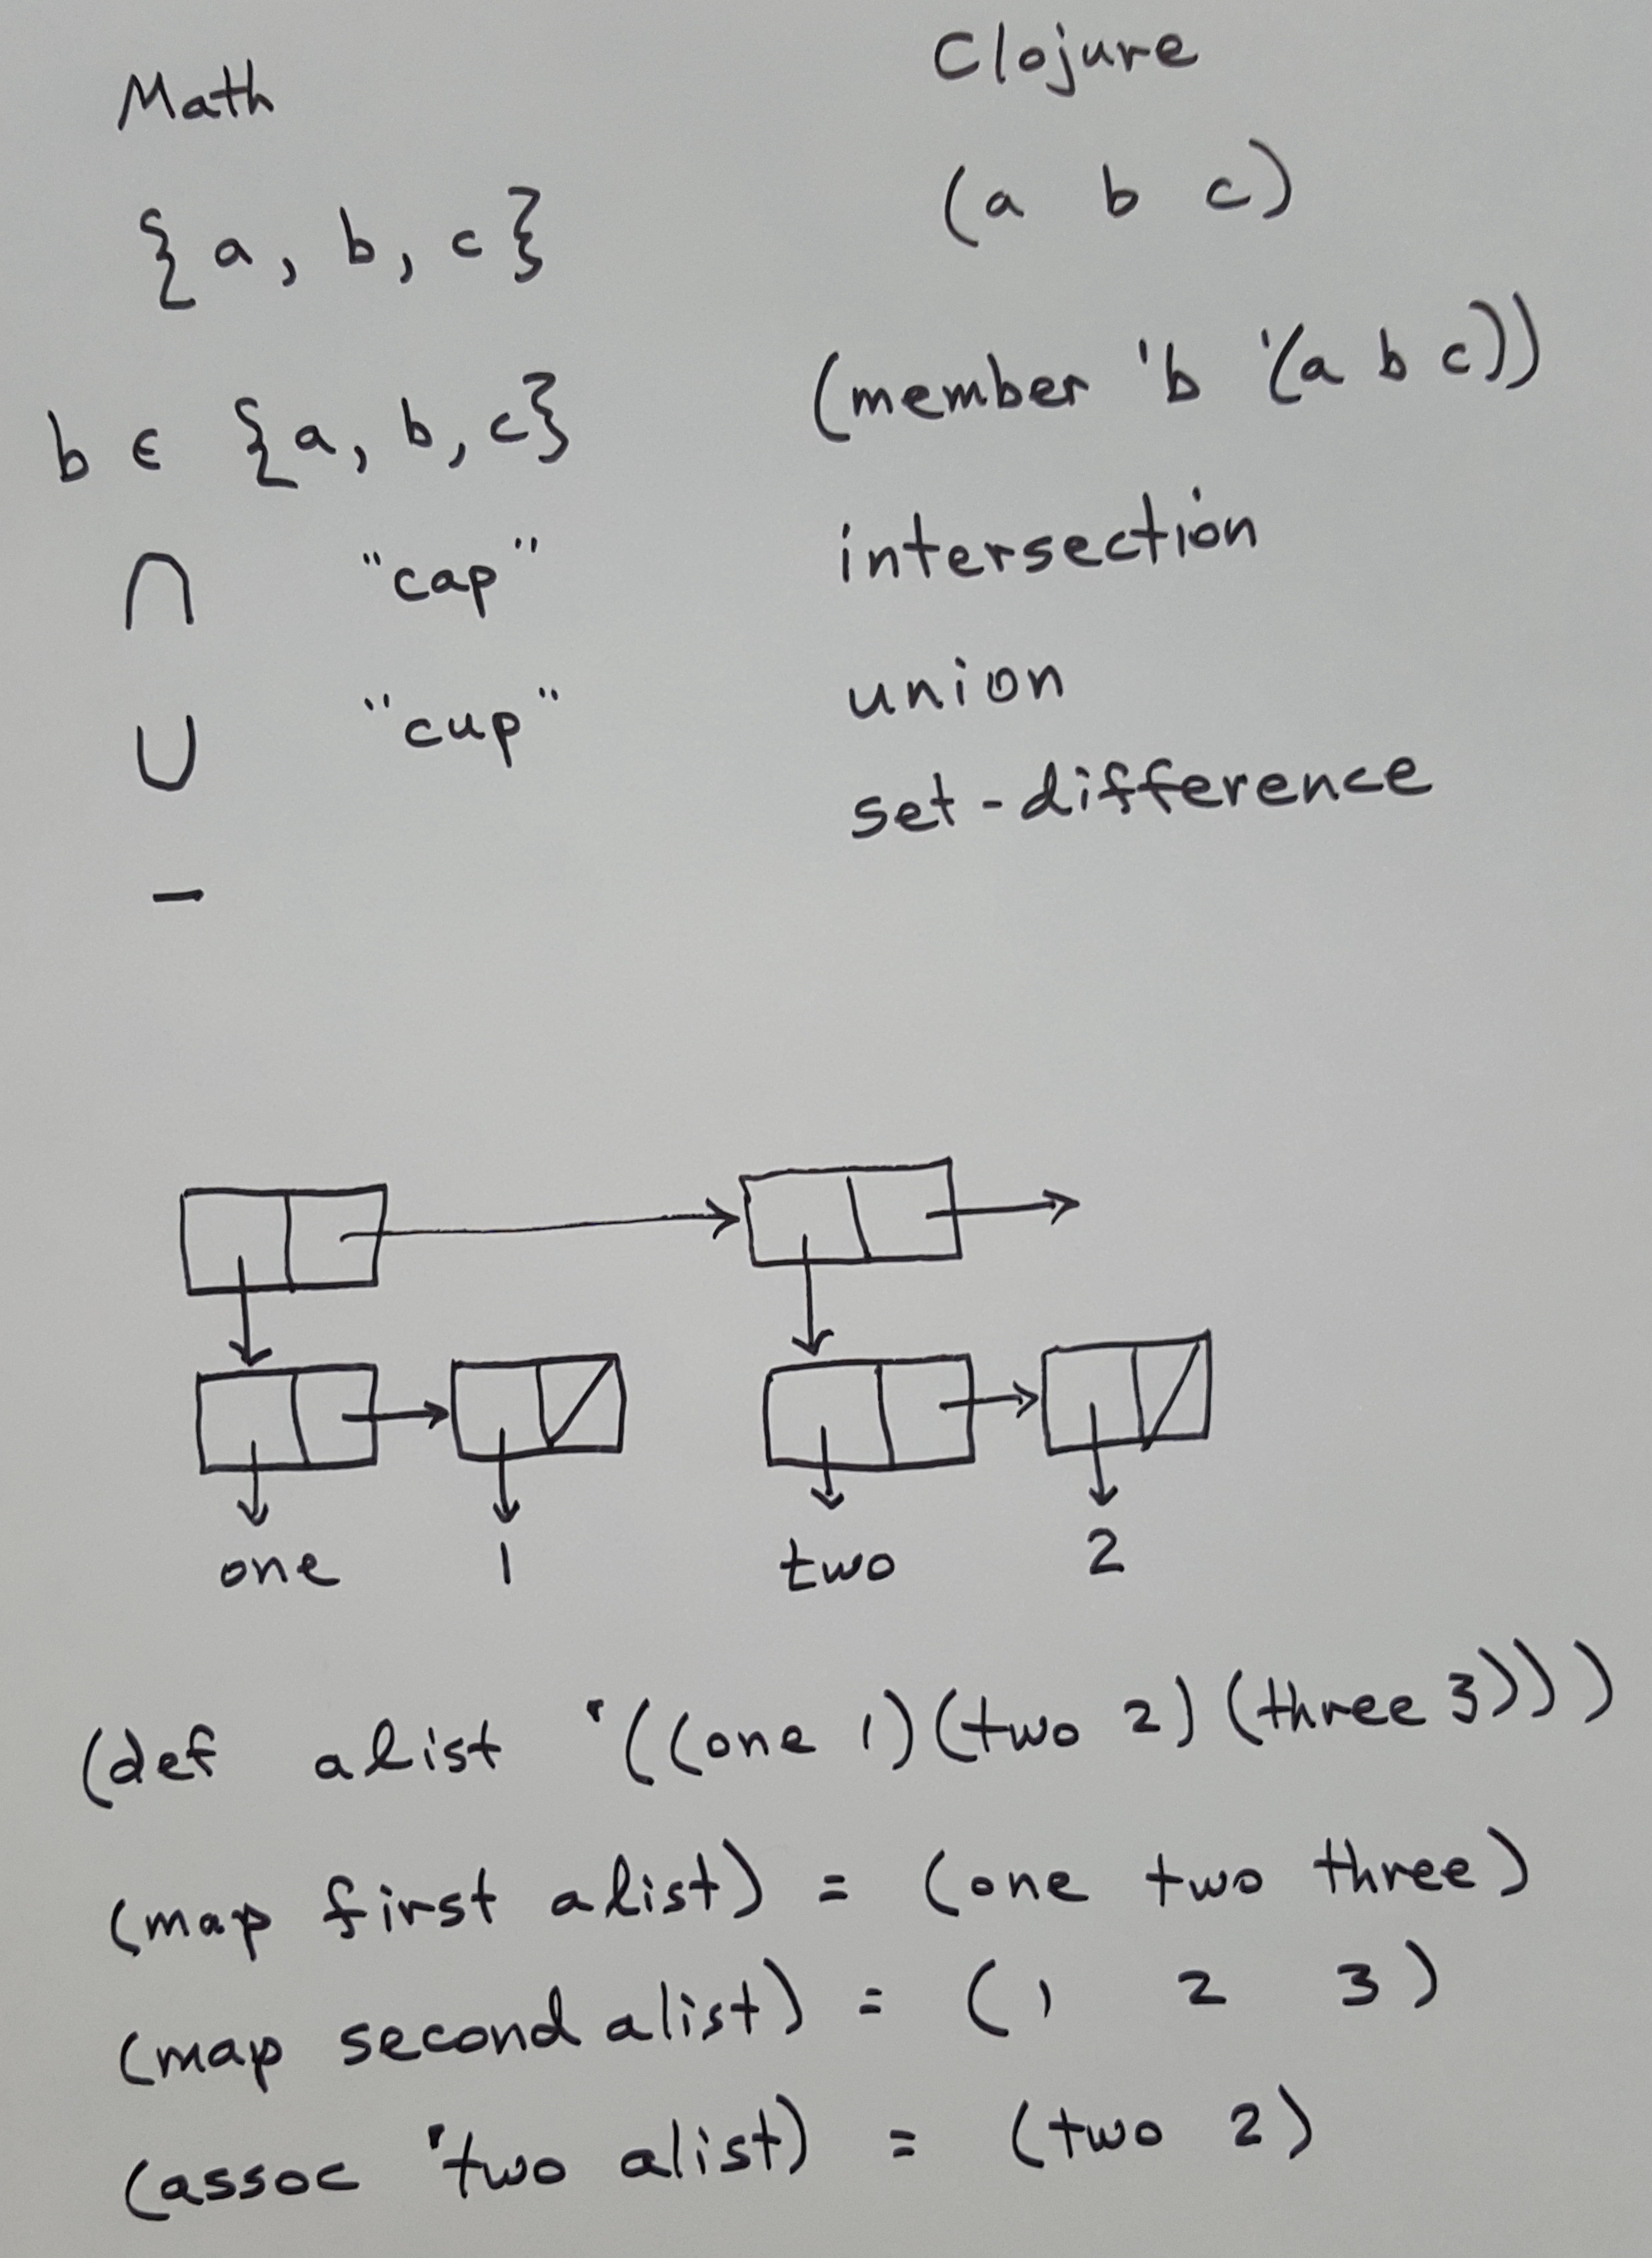 Math Clojure
{a, b, c} (a b c)
b ∈ {a, b, c} (member 'b '(a b c))
∩ "cap" intersection
∪ "cup" union
− set-difference
one 1 two 2
(def alist '((one 1)(two 2)(three 3)))
(map first alist) = (one two three)
(map second alist) = (1 2 3)
(assoc 'two alist) = (two 2)